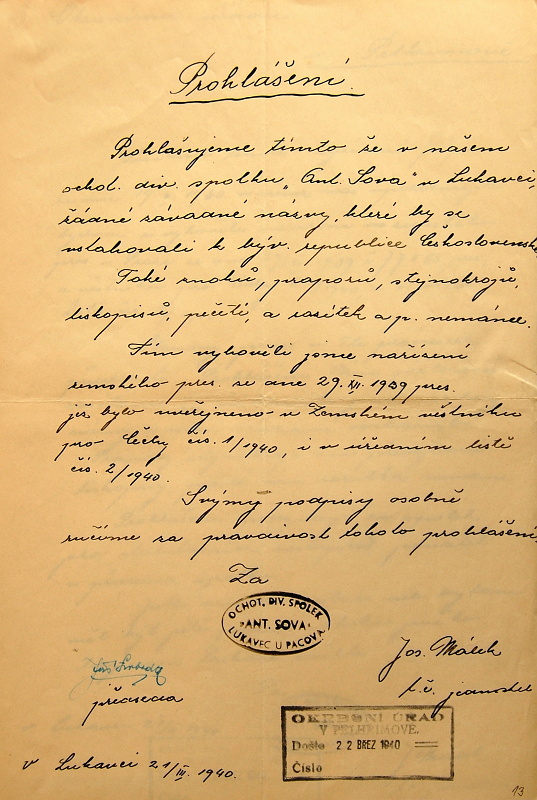 Prohlášení.
Prohlašujeme tímto že v našem
ochot. div. spolku „Ant. Sova" v Lukavci,
řádné závadné názvy, které by se
vztahovali k býv. republice Československé
Také znaků, praporů, stejnokrojů,
tiskopisů, pečetí, a razítek a p. nemáme.
Tím vyhověli jsme nařízení
zemského pres. ze dne 29. XII. 1939 pres.
jež bylo uveřejneno v Zemském věstníku
pro Čechy čís. 1/1940, i v úředním listě
čís. 2/1940.
Svými podpisy osobně
ručíme za pravdivost tohoto prohlášení.
Za
OCHOT. DIV. SPOLEK
"ANT. SOVA"
LUKAVEC U PACOVA
Jos. Málek
t.č. jednatel
předseda
OKRESNÍ ÚŘAD
V PELHŘIMOVĚ.
Došlo 22 BŘEZ 1940
Číslo
v Lukavci 21/III. 1940.
13